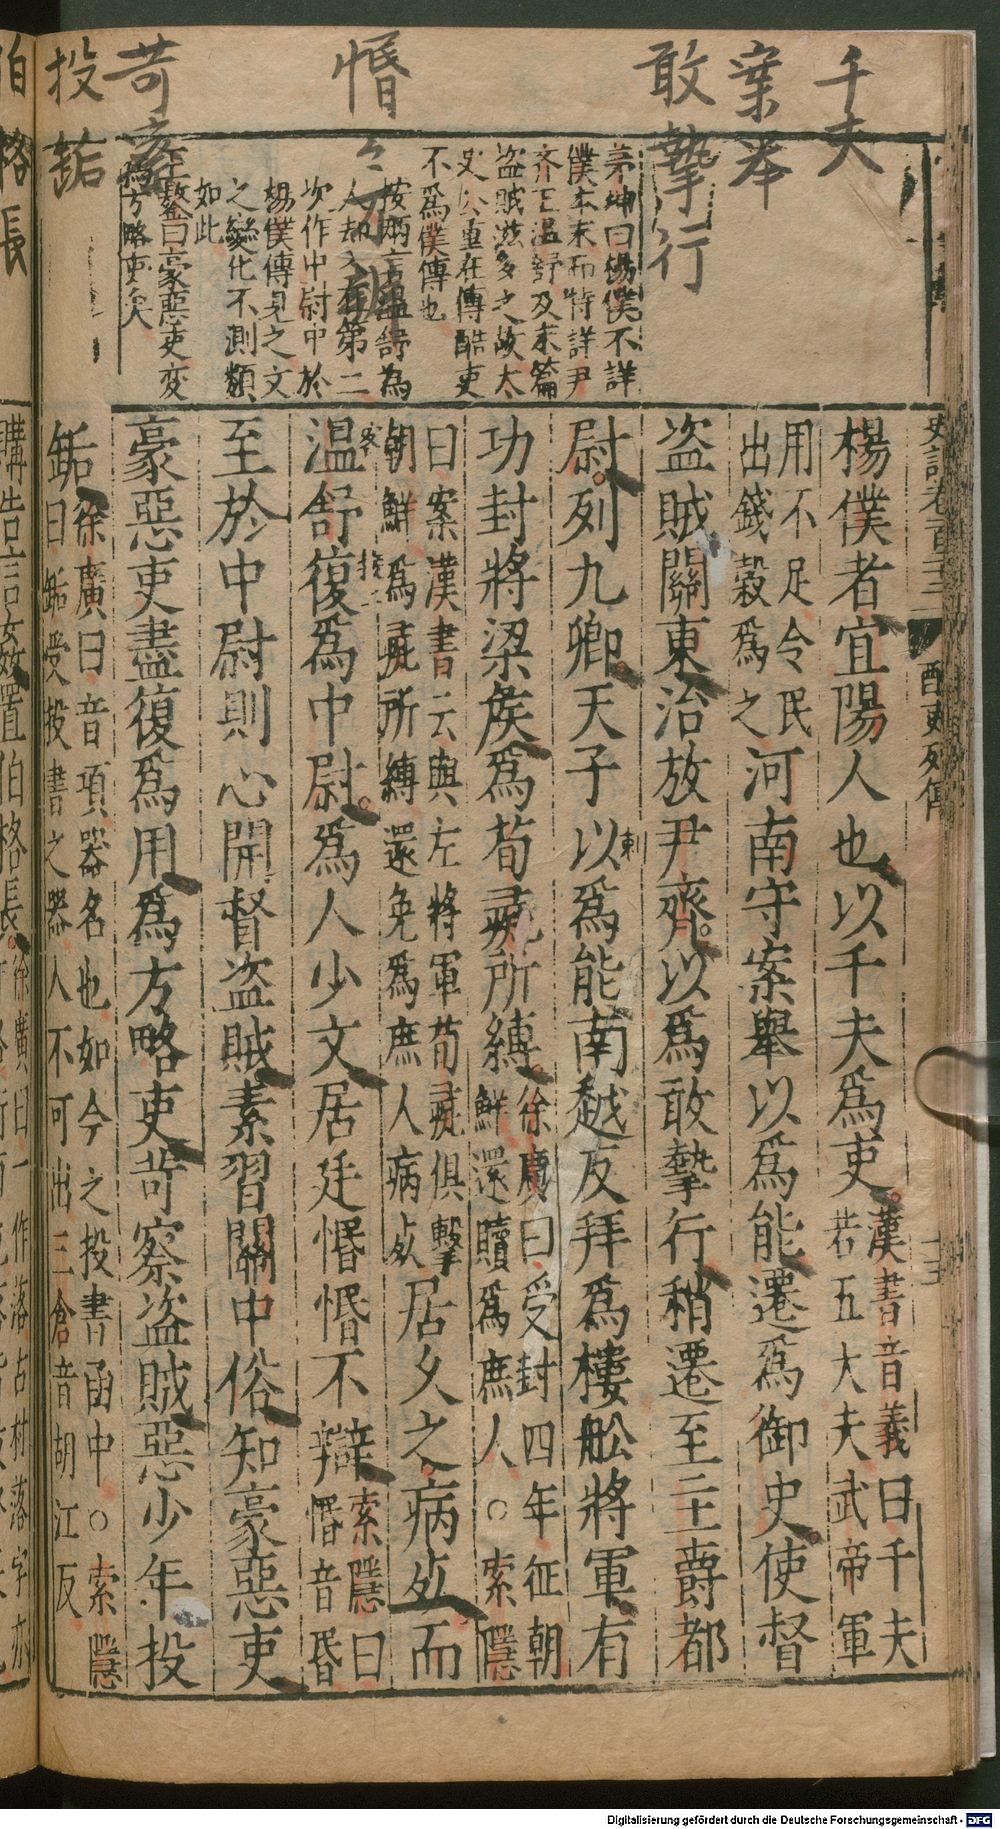 千夫
案举
敢摯行
惛
苛察
投缿
茅坤曰楊僕不詳
僕本末而特詳尹
齐王温舒及末篇
盗賊滋多之故太
史公重在傳酷吏
不爲僕傳也
按兩言温舒爲
人却又在第二
次作中尉中於
楊僕傳見之文
之變化不測類
如此
王鏊曰豪惡吏变
爲方略吏矣
史記卷百二十二
酷吏列傳
十五
楊僕者宜陽人也以千夫爲吏漢書音義曰千夫若五大夫武帝軍
用不足令民出錢穀爲之河南守案舉以爲能遷爲御史使督
盜賊關東治放尹齊以爲敢摯行稍遷至主爵都
尉列九卿天子以爲能南越反拜爲樓舩將軍有
功封將梁侯爲荀彘所縛徐廣曰受封四年征朝鮮還贖爲庶人○索隱
曰案漢書云與左將軍荀彘俱擊朝鮮爲彘所縛還免爲庶人病死居久之病死而
温舒復爲中尉爲人少文居廷惛惛不辯索隱曰惛音昏
至於中尉則心開督盜賊素習關中俗知豪惡吏
豪惡吏盡復爲用爲方略吏苛察盜賊惡少年投
缿徐廣曰音項器名也如今之投書函中○索隱曰缿受投書之器人不可出三倉音胡江反
購告言姦置伯格長
伯格長
Digitalisierung gefördert durch die Deutsche Forschungsgemeinschaft - DFG